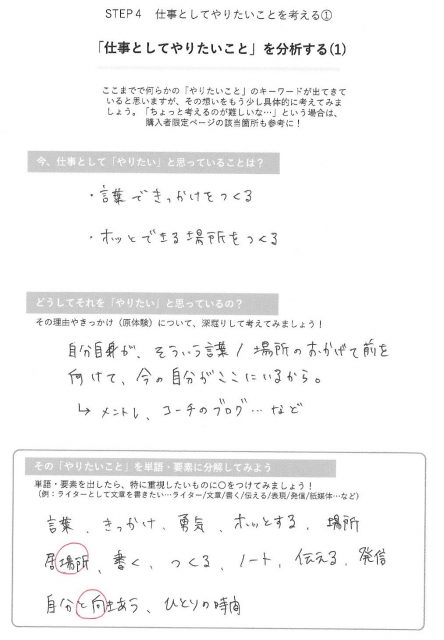 STEP4 仕事としてやりたいことを考える①
「仕事としてやりたいこと」を分析する(1)
ここまでで何らかの「やりたいこと」のキーワードが出てきて
いると思いますが、その想いをもう少し具体的に考えてみま
しょう。「ちょっと考えるのが難しいな…」という場合は、
購入者限定ページの該当箇所も参考に！
今、仕事として「やりたい」と思っていることは？
・言葉できっかけをつくる
・ホッとできる場所をつくる
どうしてそれを「やりたい」と思っているの？
その理由やきっかけ（原体験）について、深堀りして考えてみましょう！
自分自身が、そういう言葉/場所のおかげで前を
向けて、今の自分がここにいるから。
↳メントレ、コーチのブログ…など
その「やりたいこと」を単語・要素に分解してみよう
単語・要素を出したら、特に重視したいものに○をつけてみましょう！
（例：ライターとして文章を書きたい…ライター/文章/書く/伝える/表現/発信/紙媒体…など）
言葉、きっかけ、勇気、ホッとする、場所
居場所、書く、つくる、ノート、伝える、発信
自分と向きあう、ひとりの時間